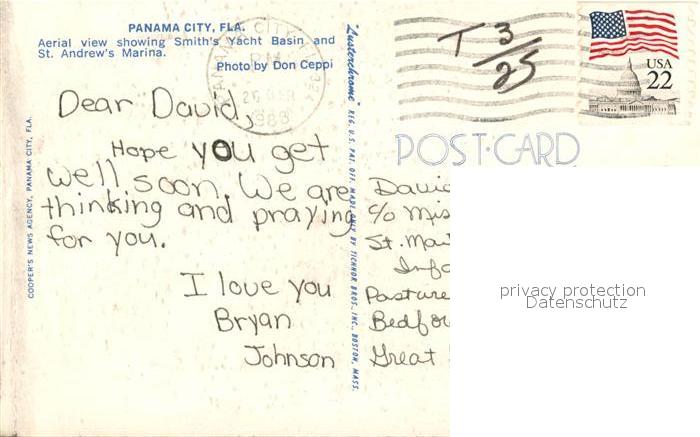 PANAMA CITY, FLA.
Aerial view showing Smith's Yacht Basin and
St. Andrew's Marina.
Photo by Don Ceppi
Dear David,
Hope you get
well soon. We are
thinking and praying
for you.
I love you
Bryan
Johnson
COOPER'S NEWS AGENCY, PANAMA CITY, FLA.
"Lusterchrome" REG. U.S. PAT. OFF. MADE ONLY BY TICHNOR BROS., INC., BOSTON, MASS.
T 3/25
USA
22
POST-CARD
David
c/o Mis
St. Mar
Info
Pasture
Bedfor
Great
privacy protection
Datenschutz